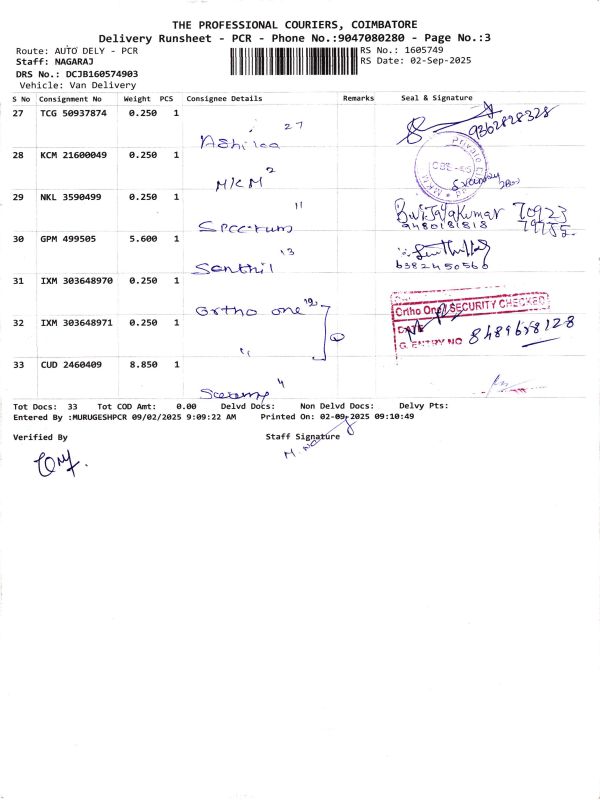 THE PROFESSIONAL COURIERS, COIMBATORE
Delivery Runsheet - PCR - Phone No.:9047080280 - Page No.:3
Route: AUTO DELY - PCR
RS No.: 1605749
Staff: NAGARAJ
RS Date: 02-Sep-2025
DRS No.: DCJB160574903
Vehicle: Van Delivery
S No Consignment No Weight PCS Consignee Details Remarks Seal & Signature
27 TCG 50937874 0.250 1 27 9362828328
28 KCM 21600049 0.250 1 MKM 2
29 NKL 3590499 0.250 1 Spectrum 11
30 GPM 499505 5.600 1 Senthil 13 6382450560
31 IXM 303648970 0.250 1 Ortho one 12
Ortho One SECURITY CHECKED
DATE
G. ENTRY NO 8489658128
32 IXM 303648971 0.250 1 "
33 CUD 2460409 8.850 1
Tot Docs: 33 Tot COD Amt: 0.00 Delvd Docs: Non Delvd Docs: Delvy Pts:
Entered By :MURUGESHPCR 09/02/2025 9:09:22 AM Printed On: 02-09-2025 09:10:49
Verified By Staff Signature